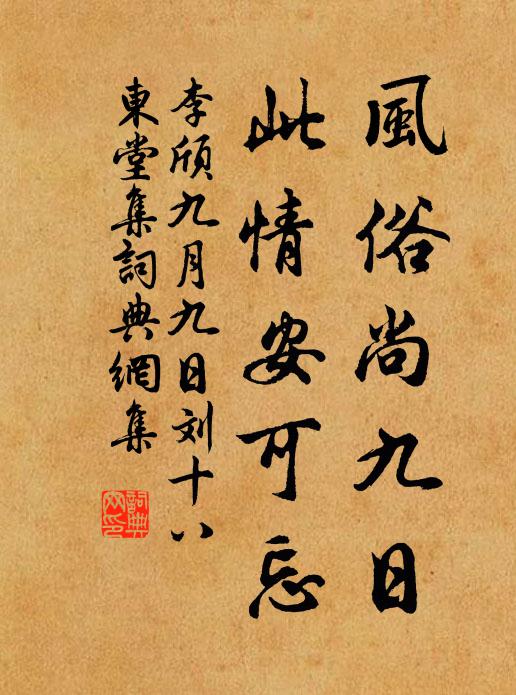 風俗尚九日
此情安可忘
李頎九月九日刘十八
東堂集詞典網集
詞典網印